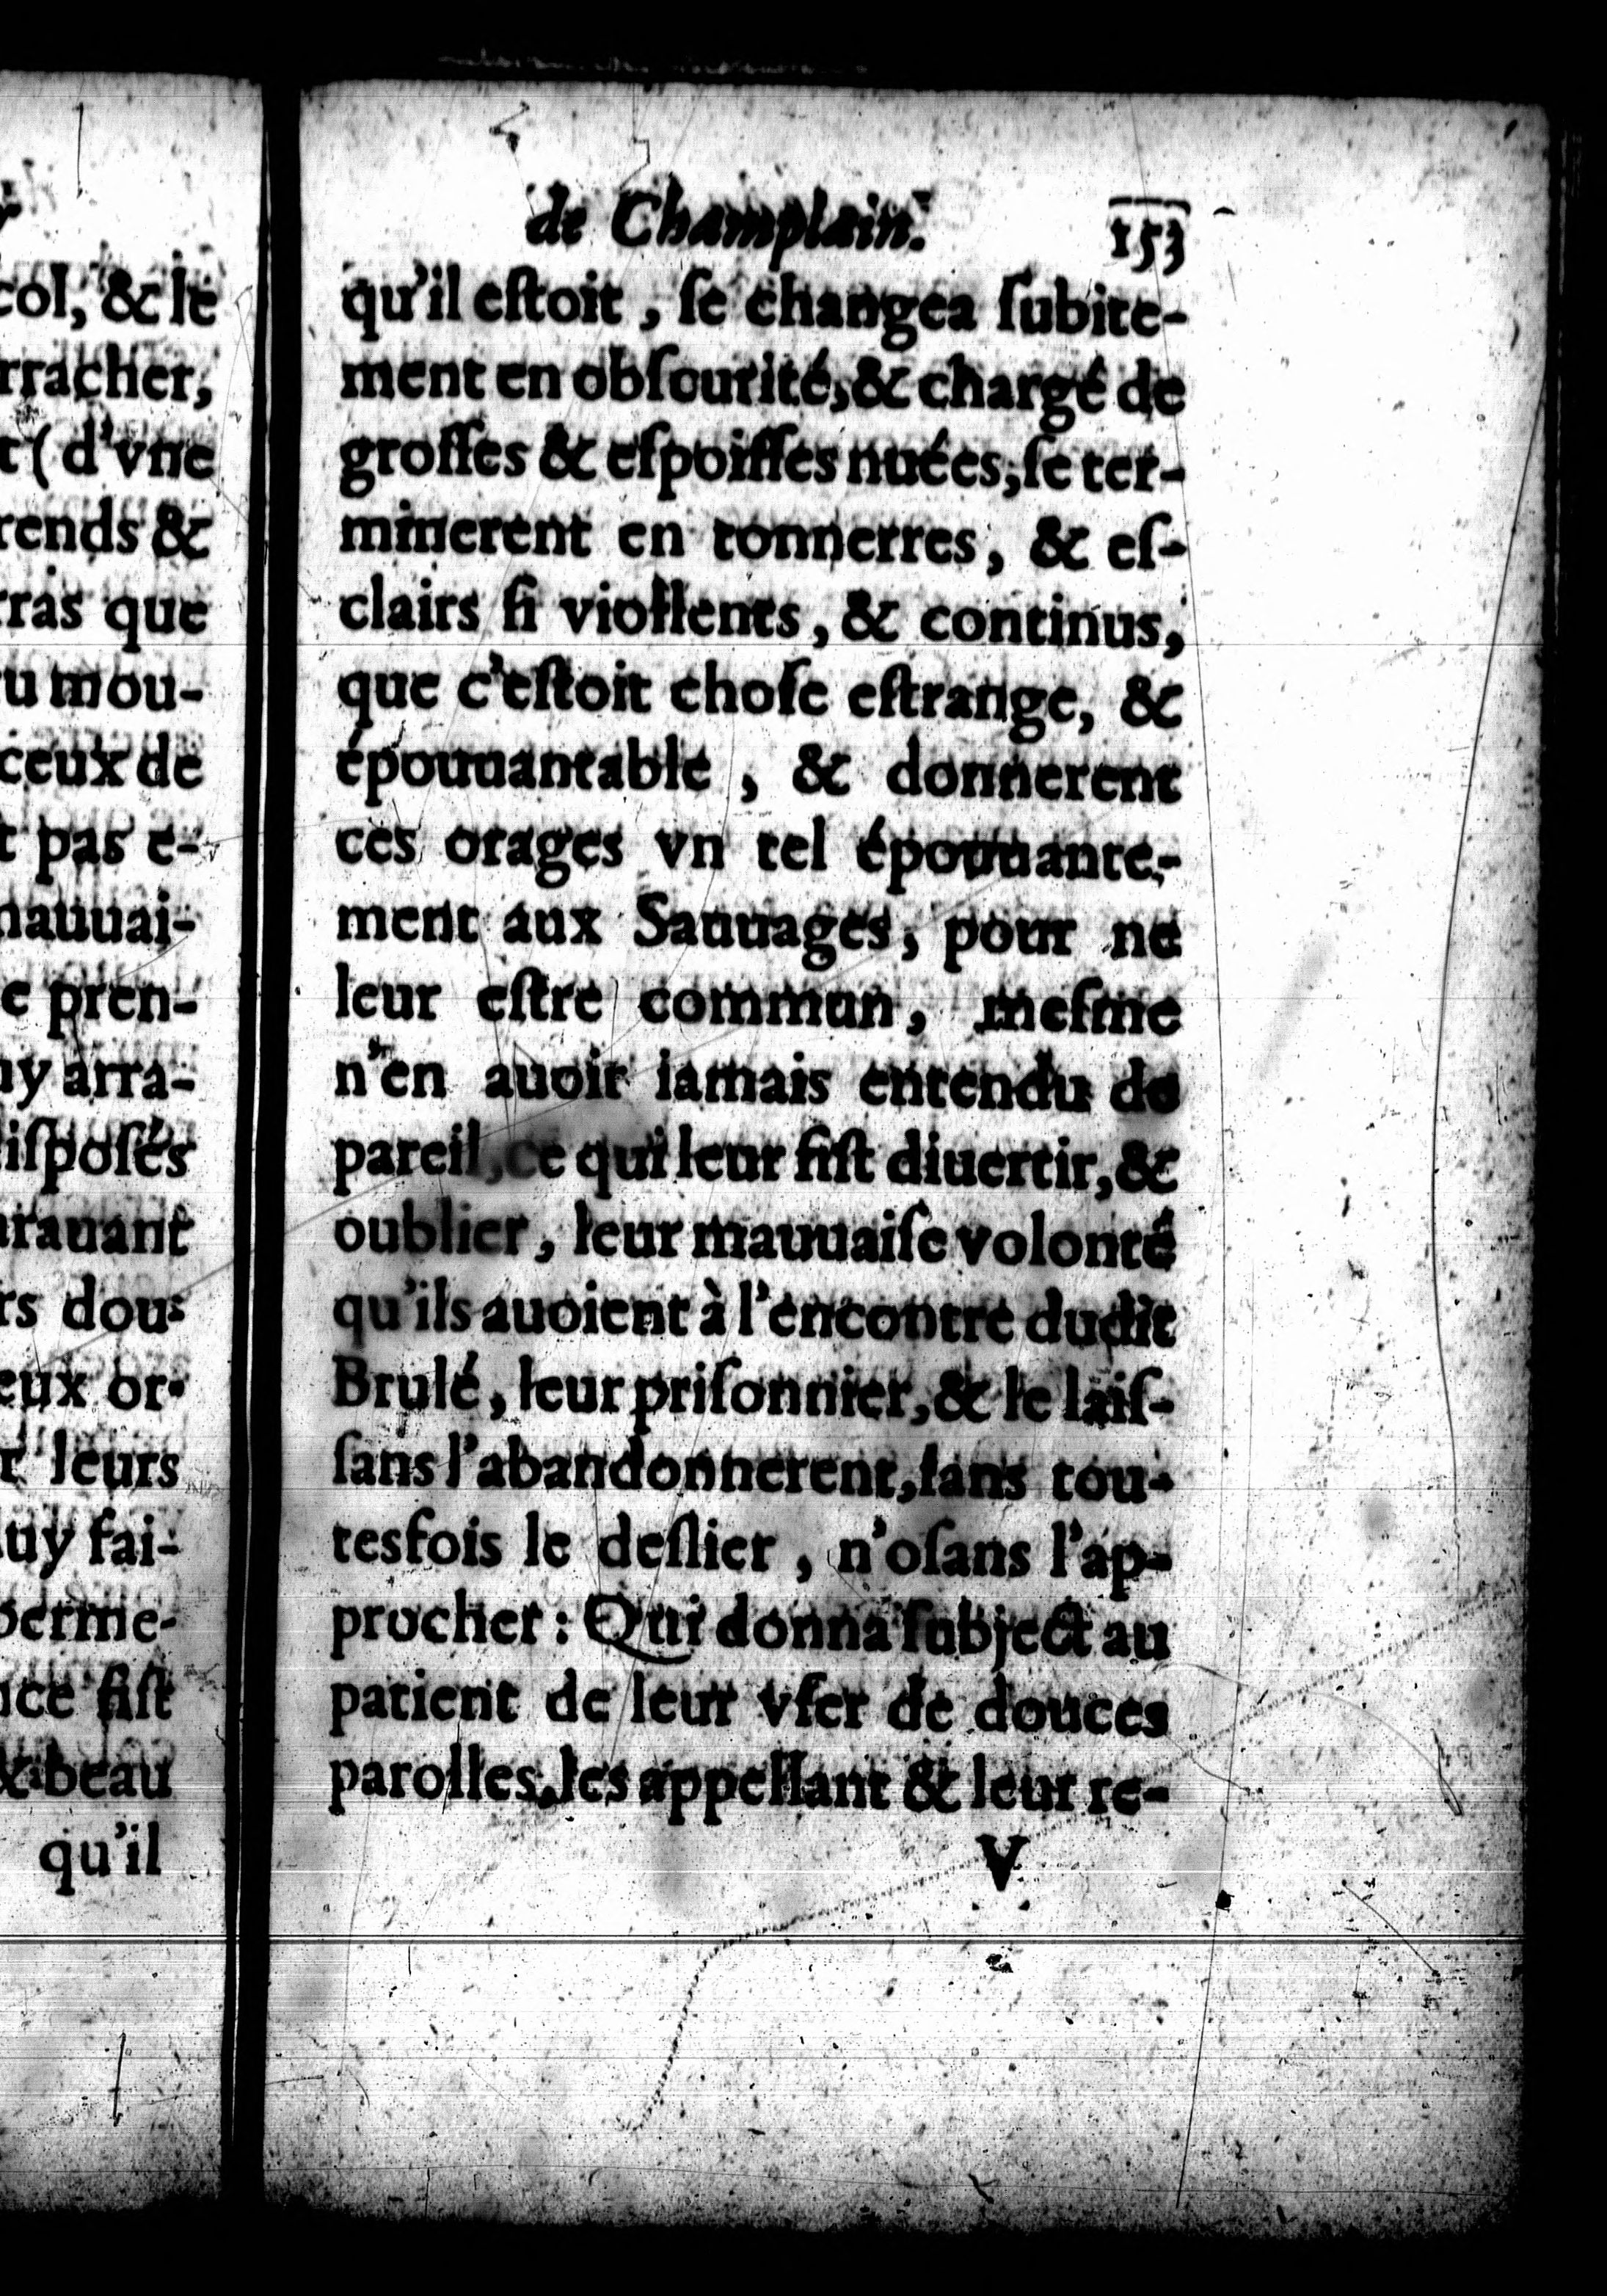 col, & le
rracher,
t ( d'vne
rends &
rras que
u mou-
ceux de
t pas e-
mauuai-
e pren-
uy arra-
diſpoſés
arauant
rs dou-
eux or-
r leurs
luy fai-
perme-
nce fiſt
& beau
qu'il
de Champlain. 153
qu'il eſtoit, ſe changea ſubite-
ment en obſcurité, & chargé de
groſſes & eſpoiſſes nuées, ſe ter-
minerent en tonnerres, & eſ-
clairs ſi viollents, & continus,
que c'eſtoit choſe eſtrange, &
épouuantable, & donnerent
ces orages vn tel épouuante-
ment aux Sauuages, pour ne
leur eſtre commun, meſme
n'en auoir iamais entendu de
pareil, ce qui leur fiſt diuertir, &
oublier, leur mauuaiſe volonté
qu'ils auoient à l'encontre dudit
Brulé, leur priſonnier, & le laiſ-
ſans l'abandonnerent, ſans tou-
tesfois le deſlier, n'oſans l'ap-
procher : Qui donna ſubject au
patient de leur vſer de douces
parolles, les appellant & leur re-
V